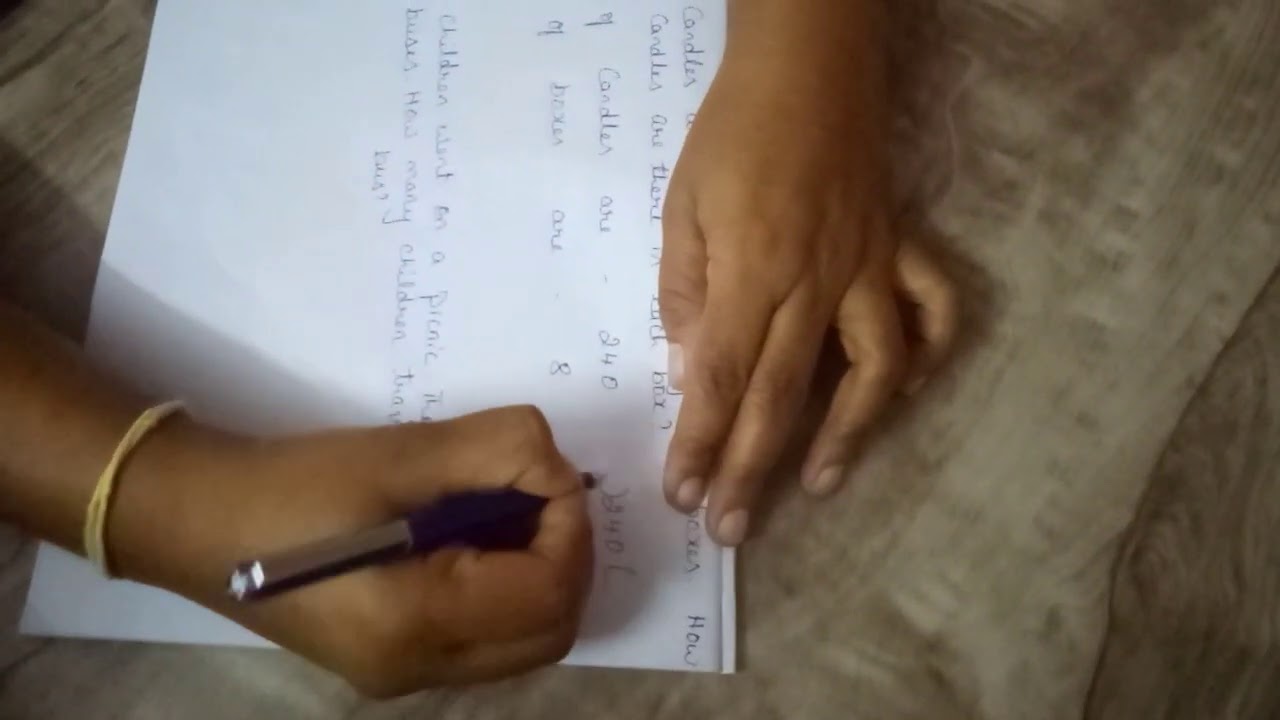 Candles boxes. How
Candles are there in each box?
of Candles are - 240 )240(
of boxes are - 8
children went on a picnic. The
buses. How many children
bus?